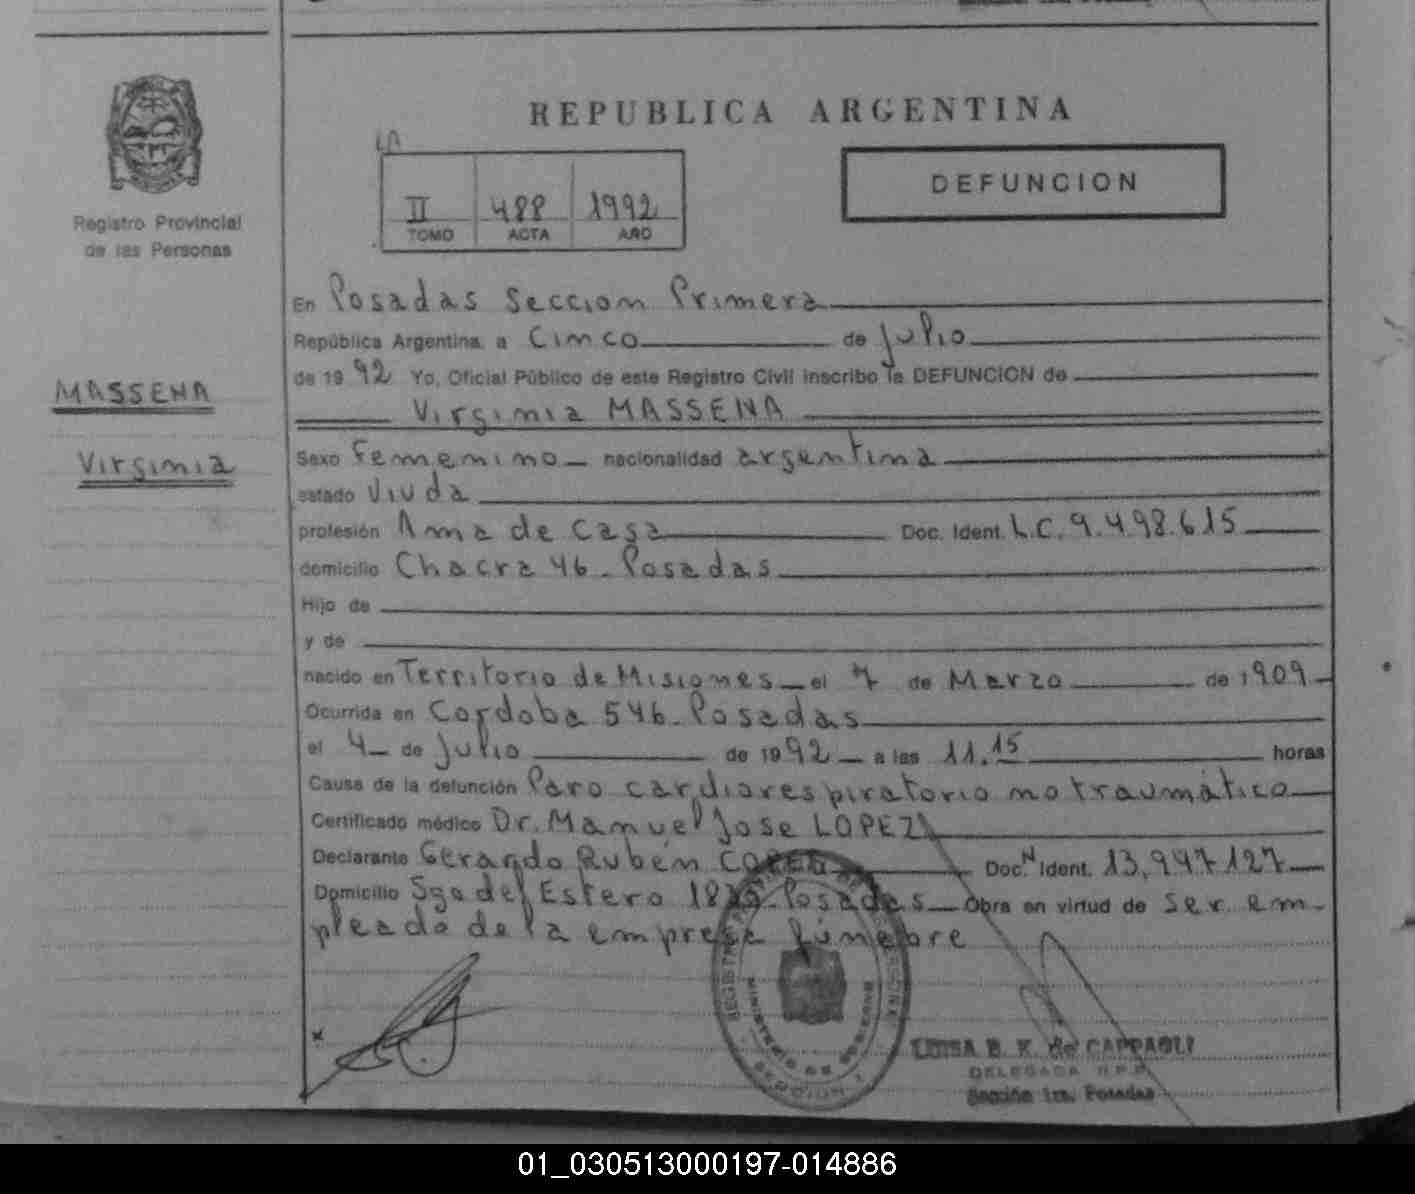 REPUBLICA ARGENTINA
LA
II 488 1992
TOMO ACTA AÑO
DEFUNCION
Registro Provincial
de las Personas
MASSENA
Virginia
En Posadas Seccion Primera
República Argentina, a Cinco de Julio
de 1992 Yo, Oficial Público de este Registro Civil inscribo la DEFUNCION de
Virginia MASSENA
Sexo Femenino nacionalidad argentina
estado Viuda
profesión Ama de Casa Doc. Ident. L.C. 9.498.615
domicilio Chacra 46 - Posadas
Hijo de
y de
nacido en Territorio de Misiones el 7 de Marzo de 1909
Ocurrida en Cordoba 546 - Posadas
el 4 de Julio de 1992 a las 11.15 horas
Causa de la defunción Paro cardiorespiratorio no traumático
Certificado médico Dr. Manuel Jose LOPEZ
Declarante Gerardo Rubén Doc. N Ident. 13,947127
Domicilio Sgo del Estero Posadas Obra en virtud de ser em-
pleado de la empresa fúnebre
LUISA B. K. de CAPPAOLI
DELEGADA R.P.P.
Sección 1ra. Posadas
01_030513000197-014886